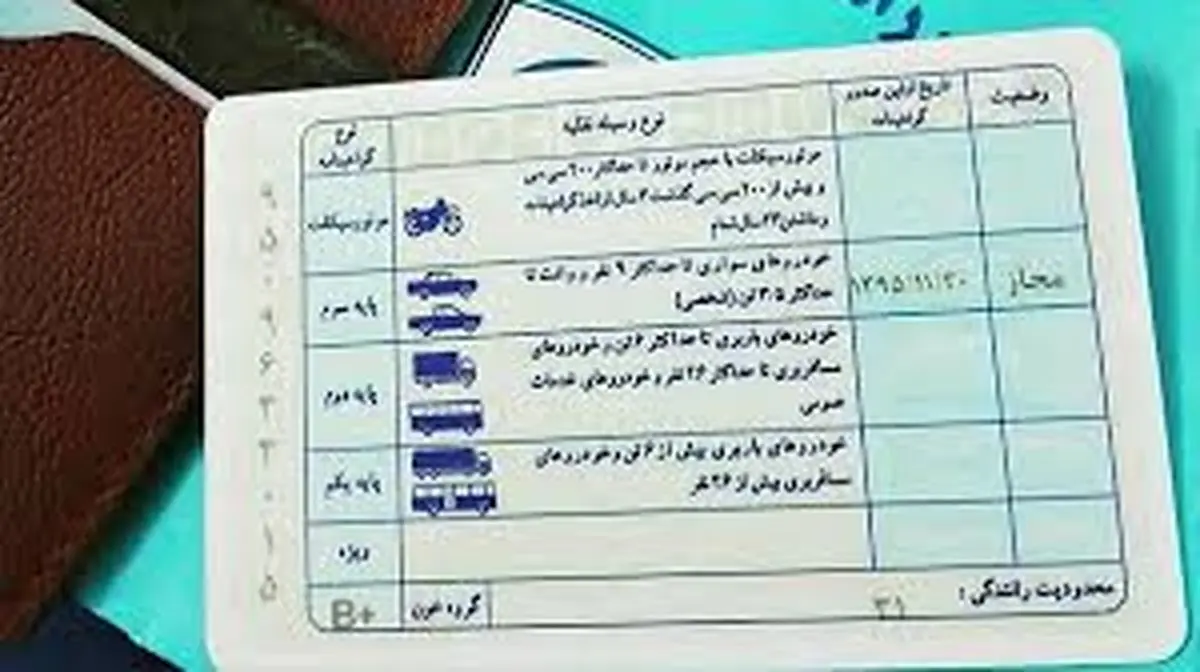 وضعیت
تاریخ اولین صدور
گواهینامه
نوع وسیله نقلیه
نوع
گواهینامه
موتورسیکلت با حجم موتور تا حداکثر ۲۰۰ سی سی
و بیش از ۲۰۰ سی سی گذشت ۲ سال از اخذ گواهینامه
و داشتن ۲۳ سال تمام
موتورسیکلت
مجاز
۱۳۹۵/۱۱/۳۰
خودروهای سواری تا حداکثر ۹ نفر و وانت تا
حداکثر ۳.۵ تن (شخصی)
پایه سوم
خودروهای باربری تا حداکثر ۶ تن و خودروهای
مسافربری تا حداکثر ۲۶ نفر و خودروهای خدمات
عمومی
پایه دوم
خودروهای باربری بیش از ۶ تن و خودروهای
مسافربری بیش از ۲۶ نفر
پایه یکم
ویژه
محدودیت رانندگی :
۳۱
گروه خون
B+
۹۵۰۹۶۳۳۰۱۵